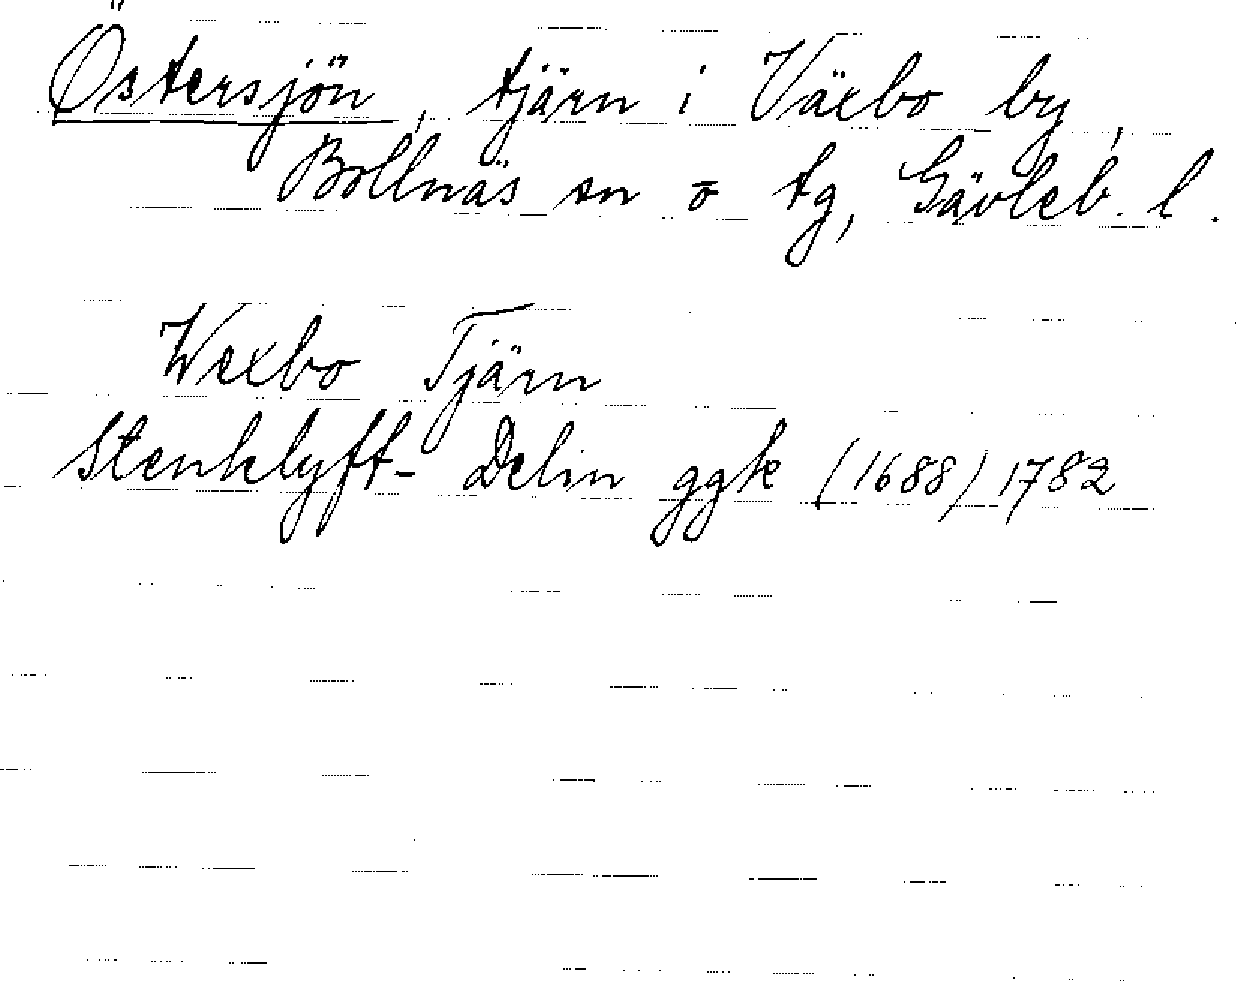 Östersjön, tjärn i Växbo by,
Bollnäs sn o tg, Gävleb. l.
Wexbo Tjärn
Stenklyft- Delin ggk (1688) 1782